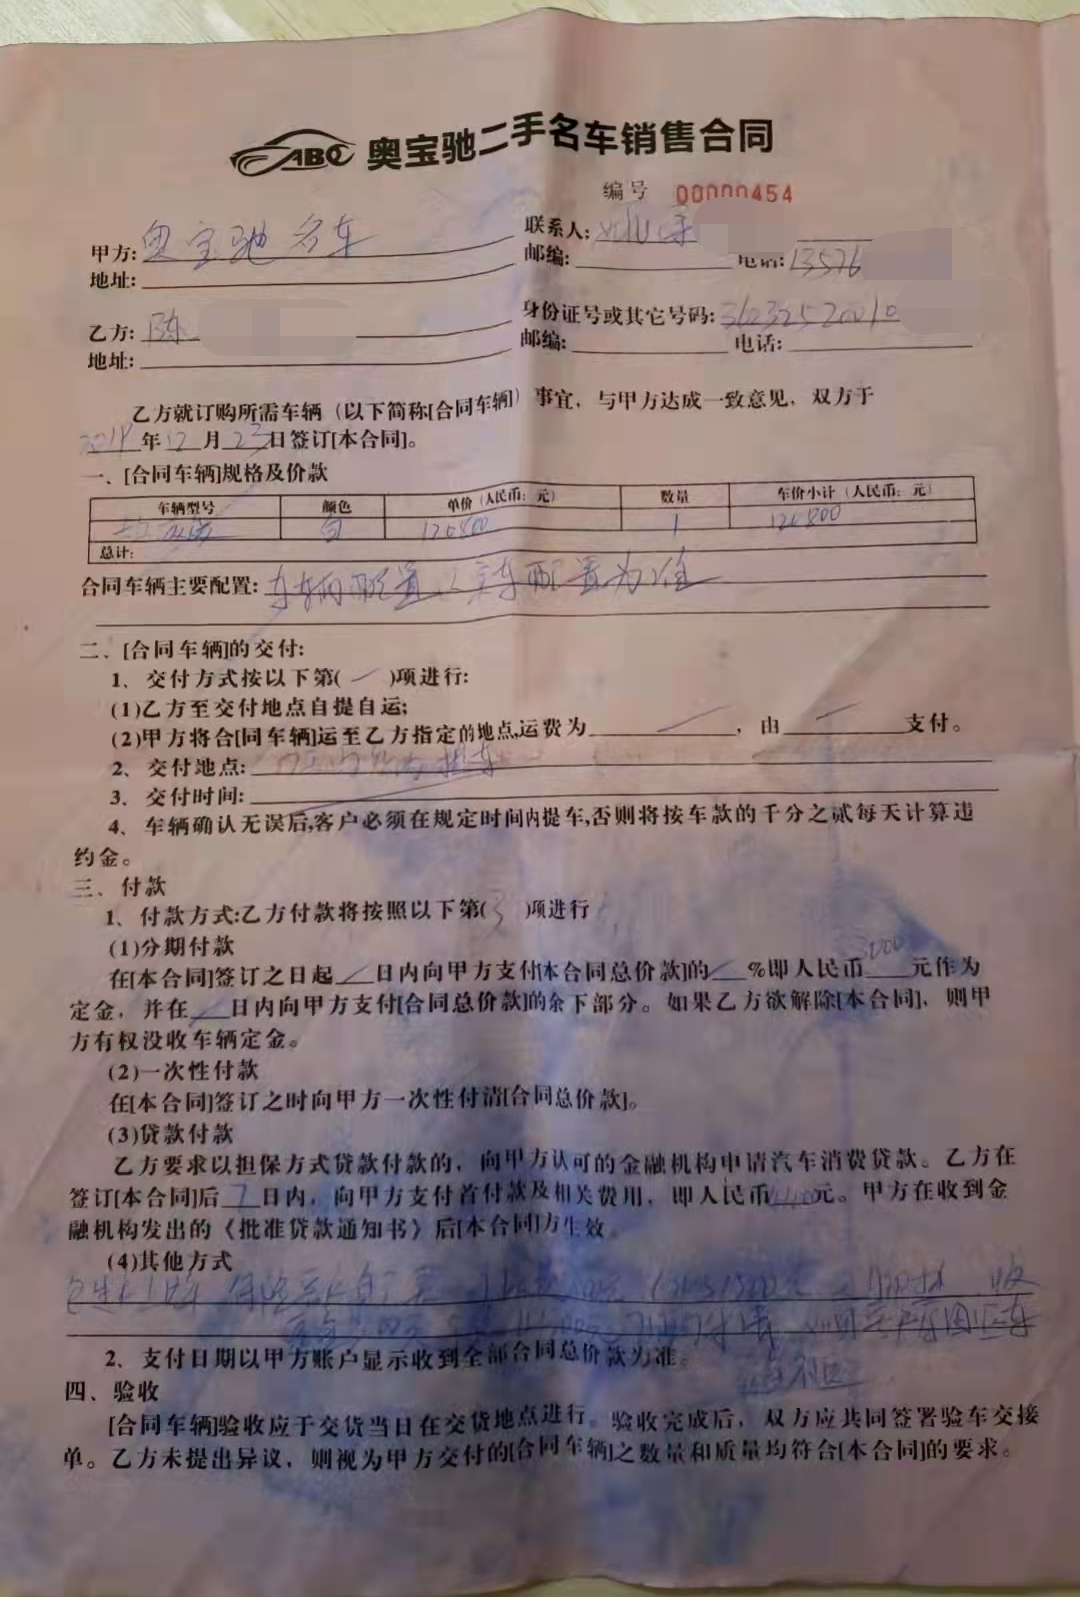 ABC 奥宝驰二手名车销售合同
编号 00000454
甲方: 奥宝驰名车 联系人:
地址: 邮编: 电话: 13576
乙方: 陈 身份证号或其它号码:
地址: 邮编: 电话:
乙方就订购所需车辆（以下简称[合同车辆]）事宜，与甲方达成一致意见，双方于
年12月23日签订[本合同]。
一、[合同车辆]规格及价款
车辆型号 颜色 单价（人民币：元） 数量 车价小计（人民币：元）
白 126800 1 126800
总计:
合同车辆主要配置: 车辆配置以实车配置为准
二、[合同车辆]的交付:
1、交付方式按以下第( )项进行:
(1)乙方至交付地点自提自运;
(2)甲方将合[同车辆]运至乙方指定的地点,运费为 ，由 支付。
2、交付地点: 提车
3、交付时间:
4、车辆确认无误后,客户必须在规定时间内提车,否则将按车款的千分之贰每天计算违
约金。
三、付款
1、付款方式:乙方付款将按照以下第(3)项进行
(1)分期付款
在[本合同]签订之日起 日内向甲方支付[本合同总价款]的 %即人民币3000元作为
定金，并在 日内向甲方支付[合同总价款]的余下部分。如果乙方欲解除[本合同]，则甲
方有权没收车辆定金。
(2)一次性付款
在[本合同]签订之时向甲方一次性付清[合同总价款]。
(3)贷款付款
乙方要求以担保方式贷款付款的，向甲方认可的金融机构申请汽车消费贷款。乙方在
签订[本合同]后7日内，向甲方支付首付款及相关费用，即人民币 元。甲方在收到金
融机构发出的《批准贷款通知书》后[本合同]方生效。
(4)其他方式
2、支付日期以甲方账户显示收到全部合同总价款为准。
四、验收
[合同车辆]验收应于交货当日在交货地点进行。验收完成后，双方应共同签署验车交接
单。乙方未提出异议，则视为甲方交付的[合同车辆]之数量和质量均符合[本合同]的要求。